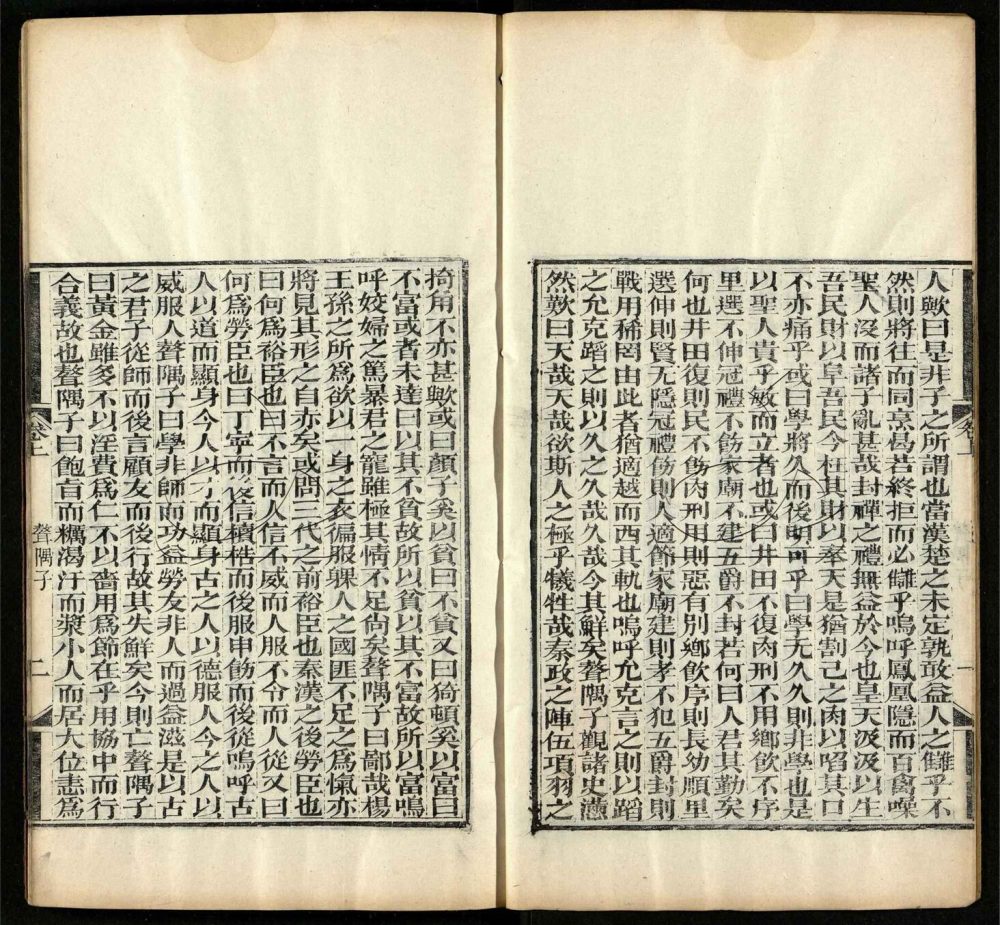 人歟曰是非子之所謂也當漢楚之未定孰敢益人之讎乎不
然則將往而同烹曷若終拒而必讎乎嗚呼鳳凰隱而百禽噪
聖人沒而諸子亂甚哉封禪之禮無益於今也皇天汲汲以生
吾民財以阜吾民今枉其財以奉天是猶割己之肉以啗其口
不亦痛乎或曰學將久而後明可乎曰學无久久則非學也是
以聖人貴乎敏而立者也或曰井田不復肉刑不用鄉飲不序
里選不伸冠禮不飭家廟不建五爵不封若何曰人君其勤矣
何也井田復則民不飭肉刑用則惡有別鄉飲序則長幼順里
選伸則賢无隱冠禮飭則人適節家廟建則孝不犯五爵封則
戰用稀罔由此者猶適越而西其軌也嗚呼允克言之則以蹈
之允克蹈之則以久之久哉久哉今其鮮矣聱隅子觀諸史懣
然歎曰天哉天哉欲斯人之極乎犧牲哉秦政之陣伍項羽之
卷上
一
掎角不亦甚歟或曰顏子奚以貧曰不貧又曰猗頓奚以富曰
不富或者未達曰以其不貧故所以貧以其不富故所以富嗚
呼姣婦之篤暴君之寵雖極其情不足尚矣聱隅子曰鄙哉楊
王孫之所爲欲以一身之衣徧服躶人之國匪不足之爲愾亦
將見其形之自亦矣或問三代之前裕臣也秦漢之後勞臣也
曰何爲裕臣也曰不言而人信不威而人服不令而人從又曰
何爲勞臣也曰丁寧而後信櫝梏而後服申飭而後從嗚呼古
人以道而顯身今人以才而顯身古之人以德服人今之人以
威服人聱隅子曰學非師而功益勞友非人而過益滋是以古
之君子從師而後言顧友而後行故其失鮮矣今則亡聱隅子
曰黃金雖多不以淫費爲仁不以嗇用爲節在乎用協中而行
合義故也聱隅子曰飽首而糲渴汗而漿小人而居大位恚爲
卷上
聱隅子
二